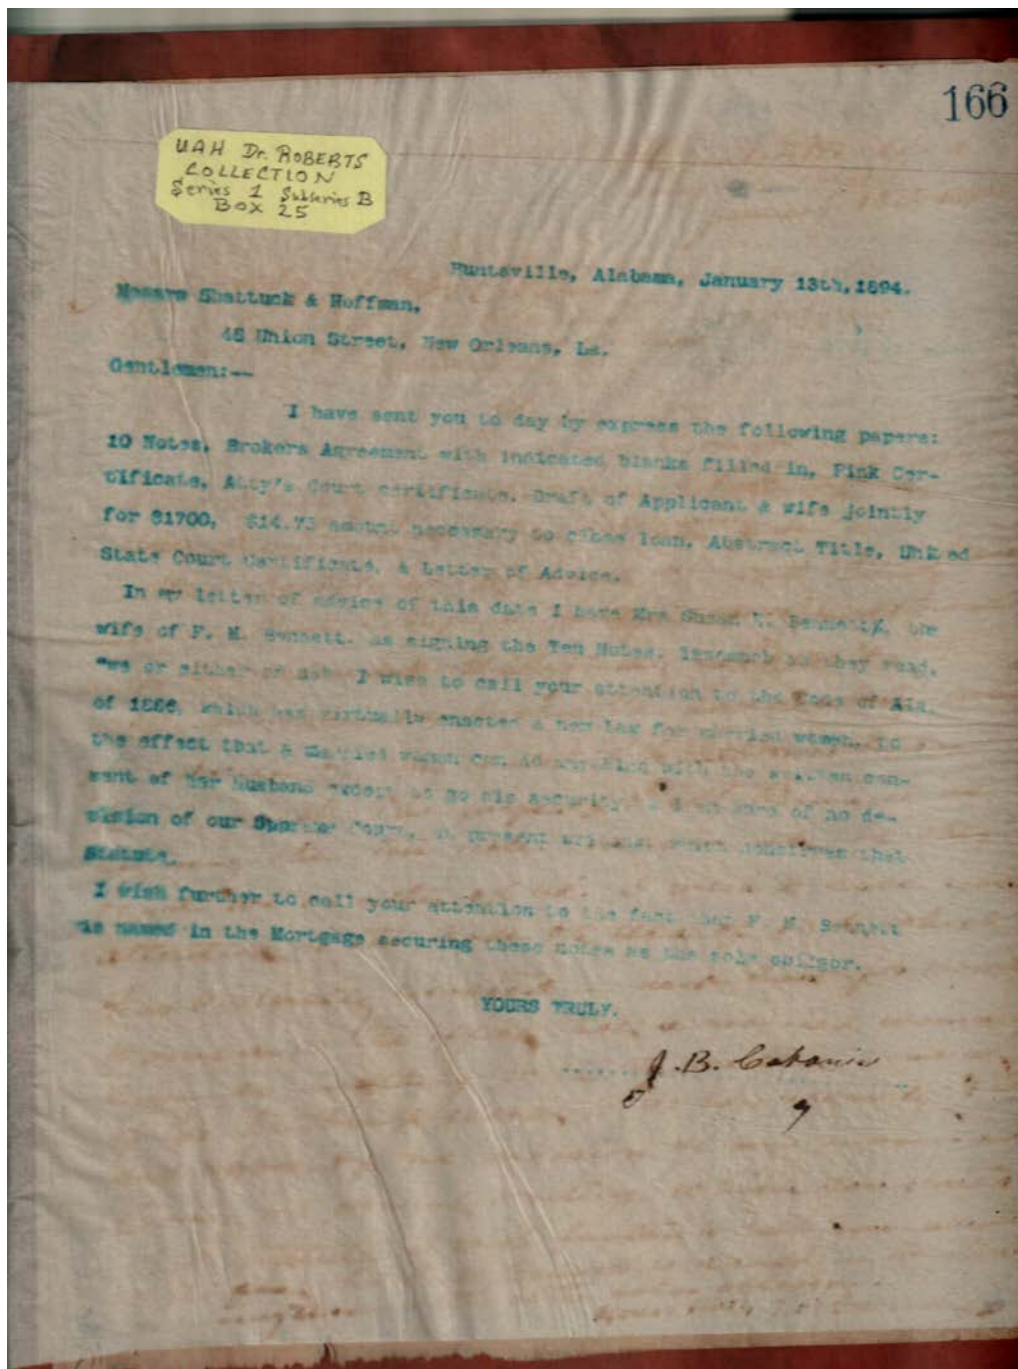 166
UAH Dr. ROBERTS
COLLECTION
Series 1 Subseries B
BOX 25
Huntsville, Alabama, January 13th, 1894.
Messrs Shattuck & Hoffman,
48 Union Street, New Orleans, La.
Gentlemen:--
I have sent you to day by express the following papers:
10 Notes, Brokers Agreement with indicated blanks filled in, Pink Cer-
tificate, Atty's Court certificate. Draft of Applicant & wife jointly
for $1700, $14.75 amount necessary to close loan, Abstract Title, United
State Court Certificate, & Letter of Advice.
In my letter of advice of this date I have Mrs Susan Bennett, the
wife of F. M. Bennett, as signing the Ten Notes. Inasmuch as they read,
"we or either of us" I wish to call your attention to the Code of Ala.
of 1886, which has virtually enacted a new law for married women, to
the effect that a married woman can do with the written con-
sent of her Husband except to go his security, & I am aware of no de-
cision of our Supreme Court, at present which construes that
Statute.
I wish further to call your attention to the fact that F. M. Bennett
is named in the Mortgage securing these notes as the sole obligor.
YOURS TRULY.
J. B. Cabaniss